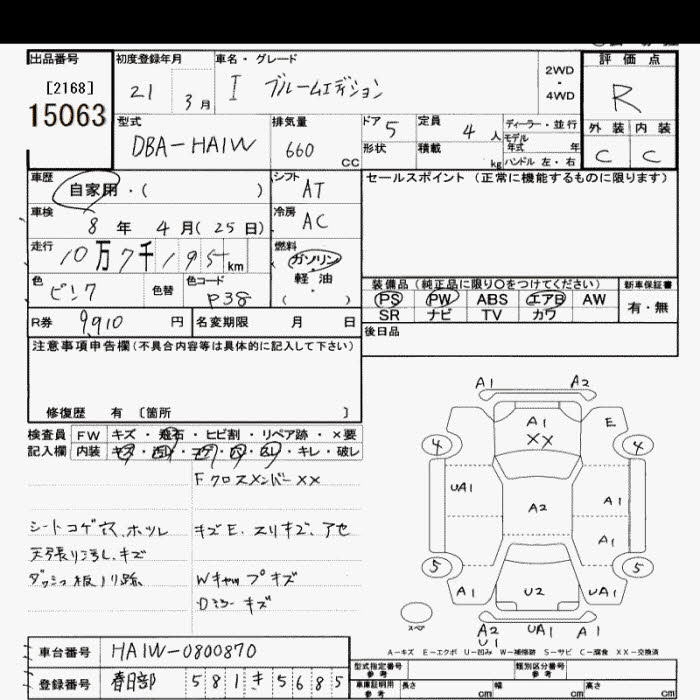 出品番号
[2168]
15063
初度登録年月
21 3月
車名・グレード
I ブルームエディション
2WD
・
4WD
評価点
R
外装 内装
C C
型式
DBA-HA1W
排気量
660 CC
ドア 5
定員 4人
形状
積載 kg
ディーラー・並行
モデル
年式 年
ハンドル 左・右
車歴
自家用・( )
シフト
AT
セールスポイント (正常に機能するものに限ります)
車検
8年 4月(25日)
冷房
AC
走行
10万7千195km
燃料
ガソリン
軽油
( )
色
ピンク
色替
色コード
P38
装備品 (純正品に限り〇をつけてください)
新車保証書
PS PW ABS エアB AW
SR ナビ TV カワ
有・無
R券 9,910円
名変期限 月 日
後日品
注意事項申告欄(不具合内容等は具体的に記入して下さい)
修復歴 有 〔箇所 〕
検査員
記入欄
FW キズ・飛石・ヒビ割・リペア跡・×要
内装 キズ・汚れ・コゲ・穴・スレ・キレ・破レ
Fクロスメンバー××
シートコゲ穴、ホツレ
キズE、スリキズ、アセ
天張り汚れ、キズ
ダッシュ板ノリ跡
Wキャップキズ
Dミラーキズ
A1 A2
A1
××
E
4 4
UA1
A2
A1
A1
5 5
A1
U2
UA1
スペア
A2
U1
UA1
A1
A-キズ E-エクボ U-凹み W-補修跡 S-サビ C-腐食 XX-交換済
車台番号
HA1W-0800870
登録番号
春日部 581 き 5685
型式指定番号
参考
類別区分番号
参考
車庫証明用
参考
長さ cm
幅 cm
高さ cm